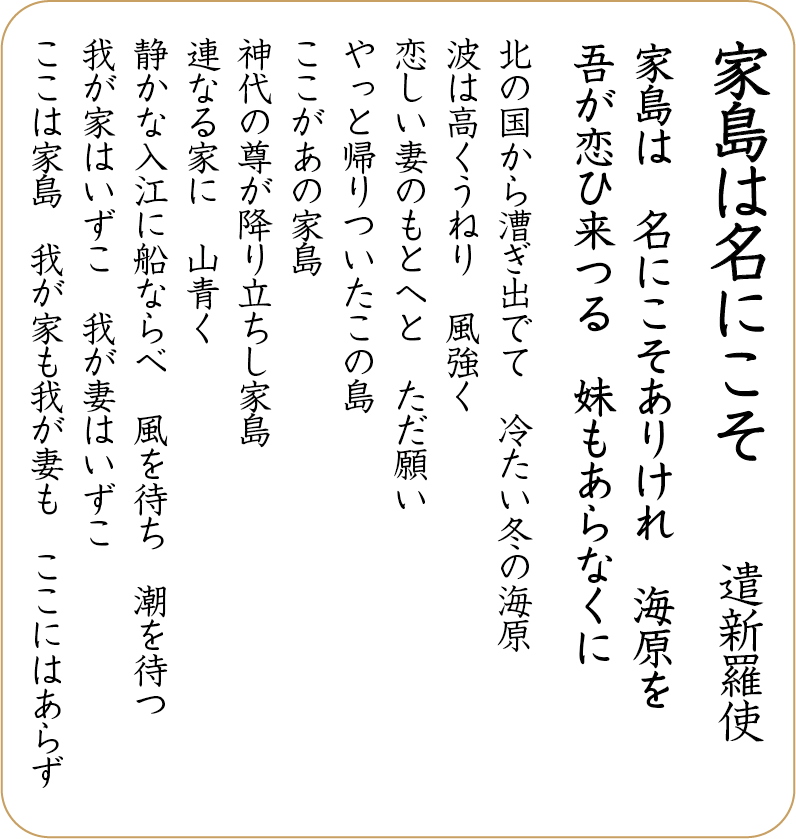 家島は名にこそ　遣新羅使
家島は　名にこそありけれ　海原を
吾が恋ひ来つる　妹もあらなくに
北の国から漕ぎ出でて　冷たい冬の海原
波は高くうねり　風強く
恋しい妻のもとへと　ただ願い
やっと帰りついたこの島
ここがあの家島
神代の尊が降り立ちし家島
連なる家に　山青く
静かな入江に船ならべ　風を待ち　潮を待つ
我が家はいずこ　我が妻はいずこ
ここは家島　我が家も我が妻も　ここにはあらず